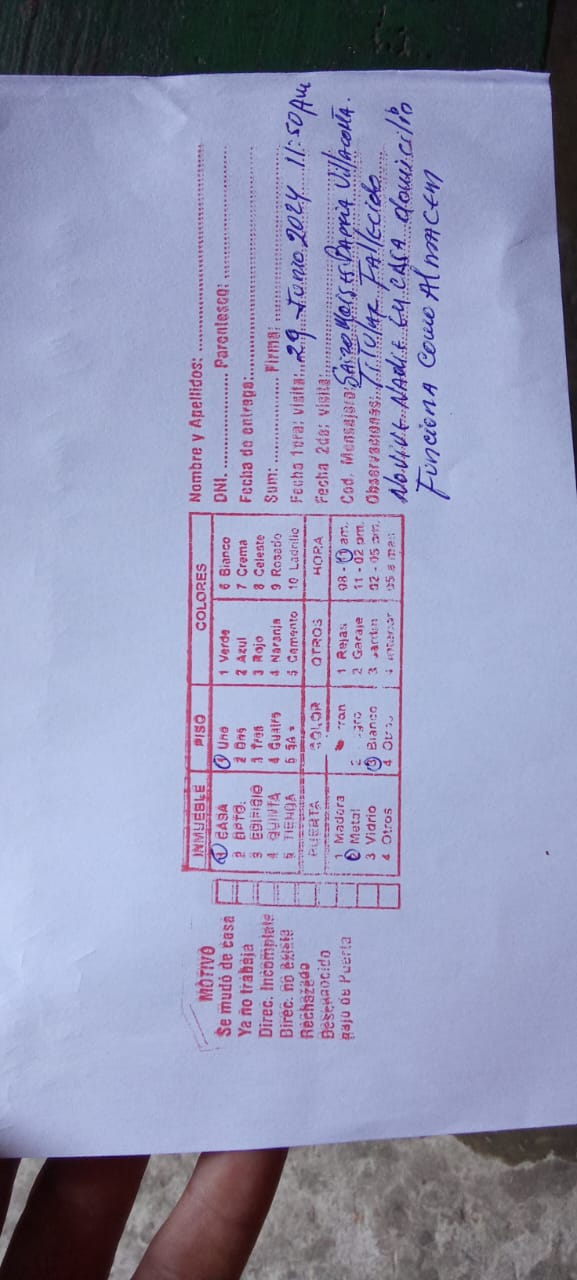 MOTIVO
Se mudó de casa
Ya no trabaja
Direc. Incompleta
Direc. no existe
Rechazado
Desconocido
Bajo de Puerta
INMUEBLE PISO COLORES
1 CASA 1 Uno 1 Verde 6 Blanco
2 DPTO. 2 Dos 2 Azul 7 Crema
3 EDIFICIO 3 Tres 3 Rojo 8 Celeste
4 QUINTA 4 Cuatro 4 Naranja 9 Rosado
5 TIENDA 5 5A + 5 Cemento 10 Ladrillo
PUERTA COLOR OTROS HORA
1 Madera 1 Rejas 08 - 11 am.
2 Metal 2 Garaje 11 - 02 pm.
3 Vidrio 3 Blanco 3 Jardin 02 - 05 pm.
4 Otros 4 Otros 4 05 a mas
Nombre y Apellidos:
DNI. Parentesco:
Fecha de entrega:
Sum: Firma:
Fecha 1era: Visita: 29 Junio 2024 11:50 AM
Fecha 2da: Visita:
Cod. Mensajero: Moises Barria Villacorta.
Observaciones: Titular Fallecido
No vive nadie en casa domicilio
Funciona como Almacem